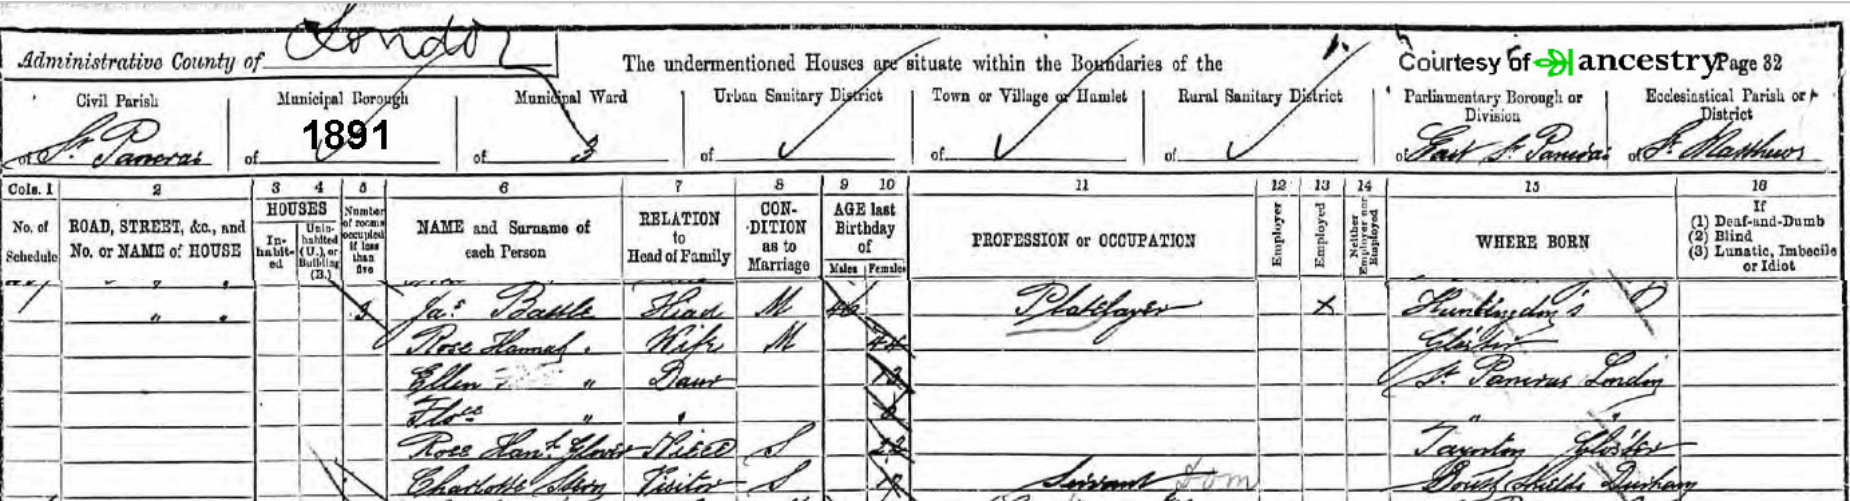 Administrative County of London
The undermentioned Houses are situate within the Boundaries of the
Courtesy of ancestry Page 32
Civil Parish
of St. Pancras
Municipal Borough
1891
of
Municipal Ward
of 3
Urban Sanitary District
of
Town or Village or Hamlet
of
Rural Sanitary District
of
Parliamentary Borough or Division
of East St Pancras
Ecclesiastical Parish or District
of St. Matthews
Cols. 1 2 3 4 5 6 7 8 9 10 11 12 13 14 15 16
No. of Schedule
ROAD, STREET, &c., and No. or NAME of HOUSE
HOUSES
In-habit-ed
Unin-habited (U.), or Building (B.)
Number of rooms occupied if less than five
NAME and Surname of each Person
RELATION to Head of Family
CON-DITION as to Marriage
AGE last Birthday of
Males Females
PROFESSION or OCCUPATION
Employer
Employed
Neither Employer nor Employed
WHERE BORN
If
(1) Deaf-and-Dumb
(2) Blind
(3) Lunatic, Imbecile or Idiot
" " 3 Jas Battle Head M 46 Platelayer X Huntingdon's
Rose Hannah " Wife M 44 Gloster
Ellen " Daur 13 St. Pancras London
Flo " " " "
Rose Han. Glover Niece S 22 Taynton Gloster
Charlotte Visitor S Servant Dom South Shields Durham